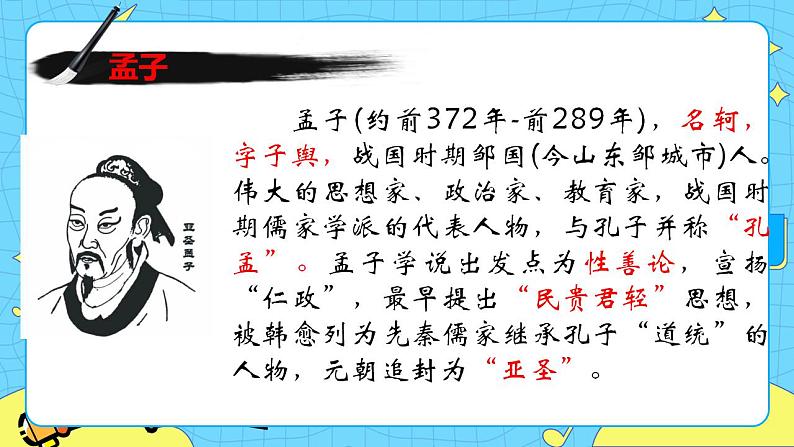 孟子
孟子(约前372年-前289年)，名轲，
字子舆，战国时期邹国(今山东邹城市)人。
伟大的思想家、政治家、教育家，战国时
期儒家学派的代表人物，与孔子并称“孔
孟”。孟子学说出发点为性善论，宣扬
“仁政”，最早提出“民贵君轻”思想，
被韩愈列为先秦儒家继承孔子“道统”的
人物，元朝追封为“亚圣”。
亚圣孟子